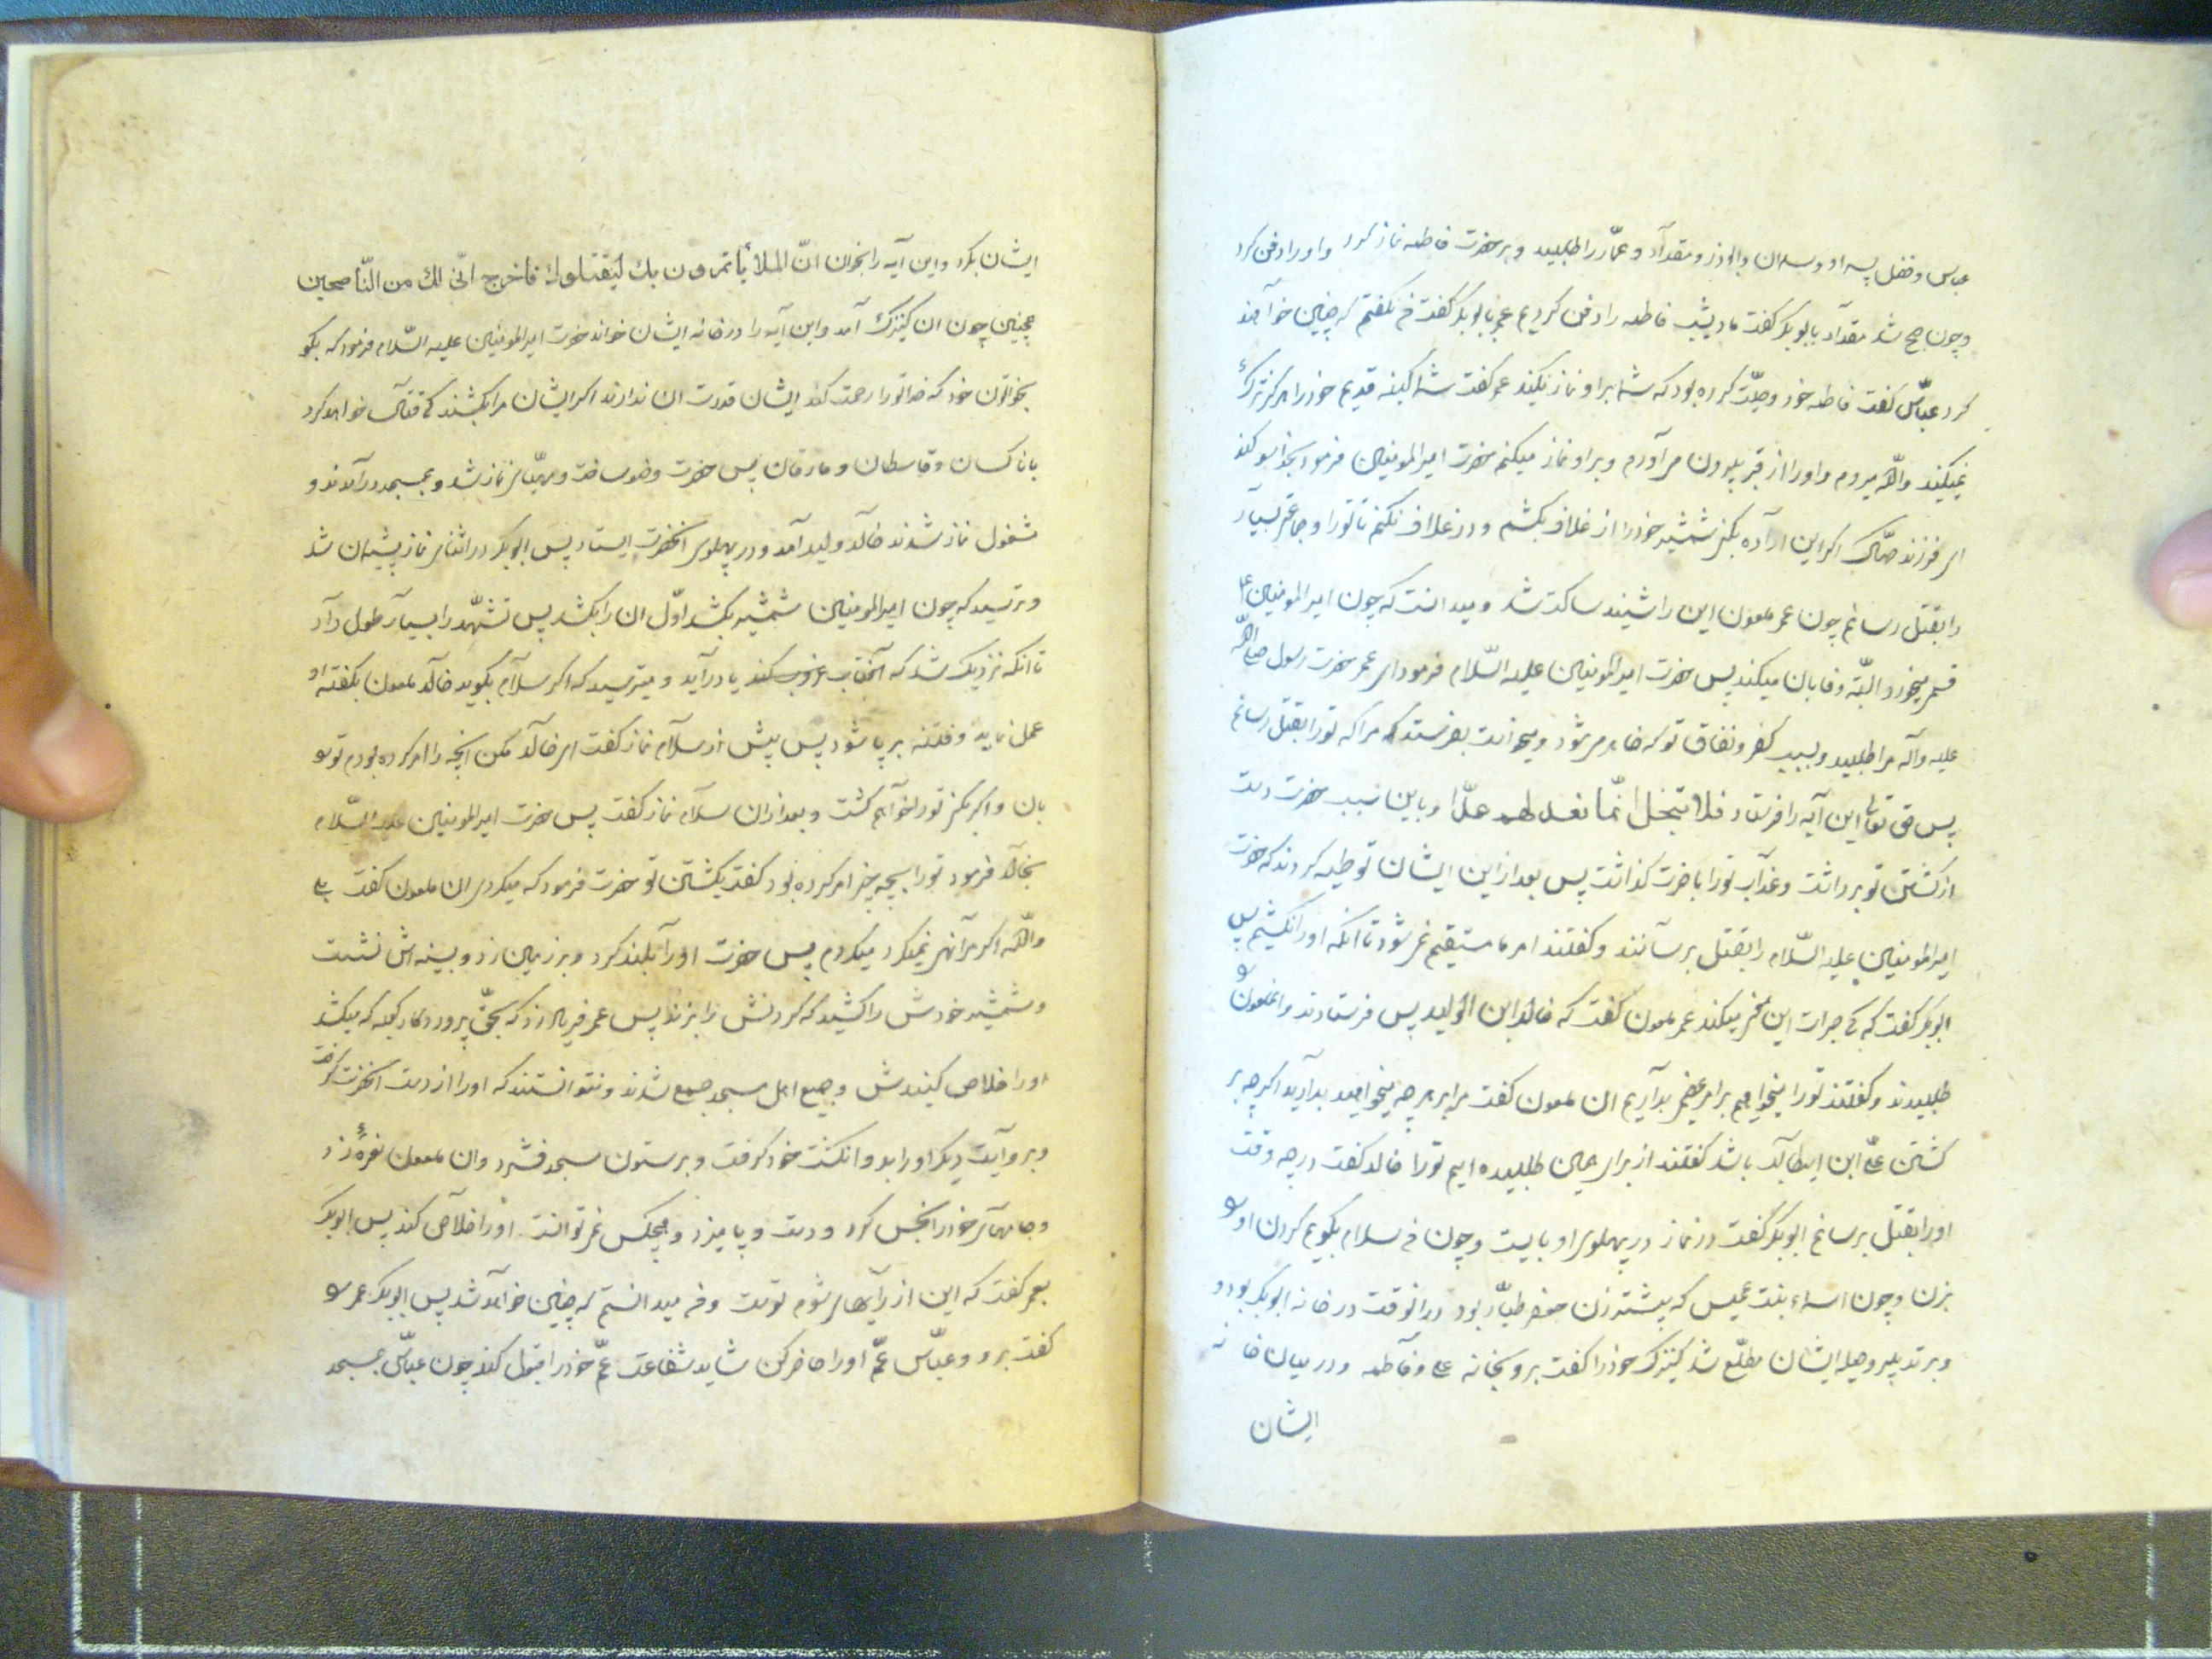 عباس و فضل پسر او و سلمان و ابوذر و مقداد و عمّار را طلبید و بر حضرت فاطمه نماز کرد و او را دفن کرد
و چون صبح شد مقداد بابوبکر گفت ما دیشب فاطمه را دفن کردیم عمر بابوبکر گفت من نگفتم که چنین خواهند
کرد عبّاس گفت فاطمه خود وصیّت کرده بود که شما بر او نماز نکنید عمر گفت شما کینه قدیم خود را هرگز ترک
نمیکنید واللّه میروم و او را از قبر بیرون می آورم و بر او نماز میکنم حضرت امیرالمومنین فرمود بخدا سوکند
ای فرزند صهّاک اکر این اراده بکنی شمشیر خود را از غلاف بکشم و در غلاف نکنم تا تو را و جماعتی بسیار
را بقتل رسانم چون عمر ملعون این را شنید ساکت شد و میدانست که چون امیرالمومنین ع
قسم میخورد البتّه وفا بان میکند پس حضرت امیرالمومنین علیه السّلام فرمود ای عمر حضرت رسول صلی اللّه
علیه وآله مرا طلبید و بسبب کفر و نفاق تو که ظاهر میشود و میخواست بفرستد که مرا که تو را بقتل رسانم
پس حق تعالی این آیه را فرستاد فلا تعجل انّما نعد لهم عدّا و باین سبب حضرت دست
از کشتن تو برداشت و عذاب تو را باخرت گذاشت پس بعد از این ایشان توطیه کردند که حضرت
امیرالمومنین علیه السّلام را بقتل برسانند و گفتند امر ما مستقیم نمی شود تا انکه او را نکشیم پس
ابوبکر گفت که کی جرات این میکند عمر ملعون گفت که خالد ابن الولید پس فرستادند و انملعون را
طلبیدند و گفتند تو را میخواهیم برامر عظیمی بداریم ان ملعون گفت مرا بر هر چه میخواهید بدارید اکر چه بر
کشتن علی ابن ابیطالب باشد گفتند از برای همین طلبیده ایم تو را خالد گفت در چه وقت
او را بقتل برسانم ابوبکر گفت در نماز در پهلوی او بایست و چون من سلام بکویم کردن او را
بزن و چون اسماء بنت عمیس که پیشتر زن جعفر طیّار بود در انوقت در خانه ابوبکر بود و
و بر تدبیر و حیله ایشان مطلّع شد کنیزک خود را گفت برو بخانه علی و فاطمه و در میان خانه
ایشان
ایشان بکرد و این آیه را بخوان انّ الملأ یأتمرون بك لیقتلوك فاخرج انّی لك من النّاصحین
همچنین چون ان کنیزک آمد و این آیه را در خانه ایشان خواند حضرت امیرالمومنین علیه السّلام فرمود که بکو
بخواتون خود که خدا تو را رحمت کند ایشان قدرت ان ندارند اکر ایشان مرا بکشند که قتال خواهد کرد
با ناکسان و قاسطان و مارقان پس حضرت وضو ساخت و مهیّای نماز شد و بمسجد در آمدند و
مشغول نماز شدند خالد ولید آمد و در پهلوی انحضرت ایستاد پس ابوبکر در اثنای نماز پشیمان شد
و ترسید که چون امیرالمومنین شمشیر بکشد اوّل ان را بکشد پس تشهّد را بسیار طول داد
تا انکه نزدیک شد که آفتاب غروب کند یا درآید و میترسید که اکر سلام بکوید خالد ملعون بکفته او
عمل نماید و فتنه برپا شود پس پیش از سلام نماز گفت ای خالد مکن انچه را امر کرده بودم تو را
بان و اکر بکنی تو را خواهم کشت و بعد از ان سلام نماز گفت پس حضرت امیرالمومنین علیه السّلام
بخالد فرمود تو را بچه چیز امر کرده بود گفت بکشتن تو حضرت فرمود که میکردی ان ملعون گفت بلی
واللّه اکر مرا نهی نمیکرد میکردم پس حضرت او را بلند کرد و بر زمین زد و بسینه اش نشست
و شمشیر خودش را کشید که کردنش را بزند پس عمر فریاد زد که بحقّ پروردکار کعبه که میکشد
او را خلاص کنیدش و جمیع اهل مسجد جمع شدند و نتوانستند که او را از دست انحضرت گرفت
و بروایت دیکر او را بدو انکشت خود کرفت و بر ستون مسجد فشرد و ان ملعون نعرهٔ زد
و جامهای خود را نجس کرد و دست و پا میزد و هیچکس نمی توانست او را خلاص کند پس ابوبکر
بعمر گفت که این از رایهای شوم توست و من میدانستم که چنین خواهد شد پس ابوبکر عمر را
گفت برو و عبّاس عمّ او را حاضر کن شاید شفاعت عمّ خود را قبول کند چون عبّاس بمسجد